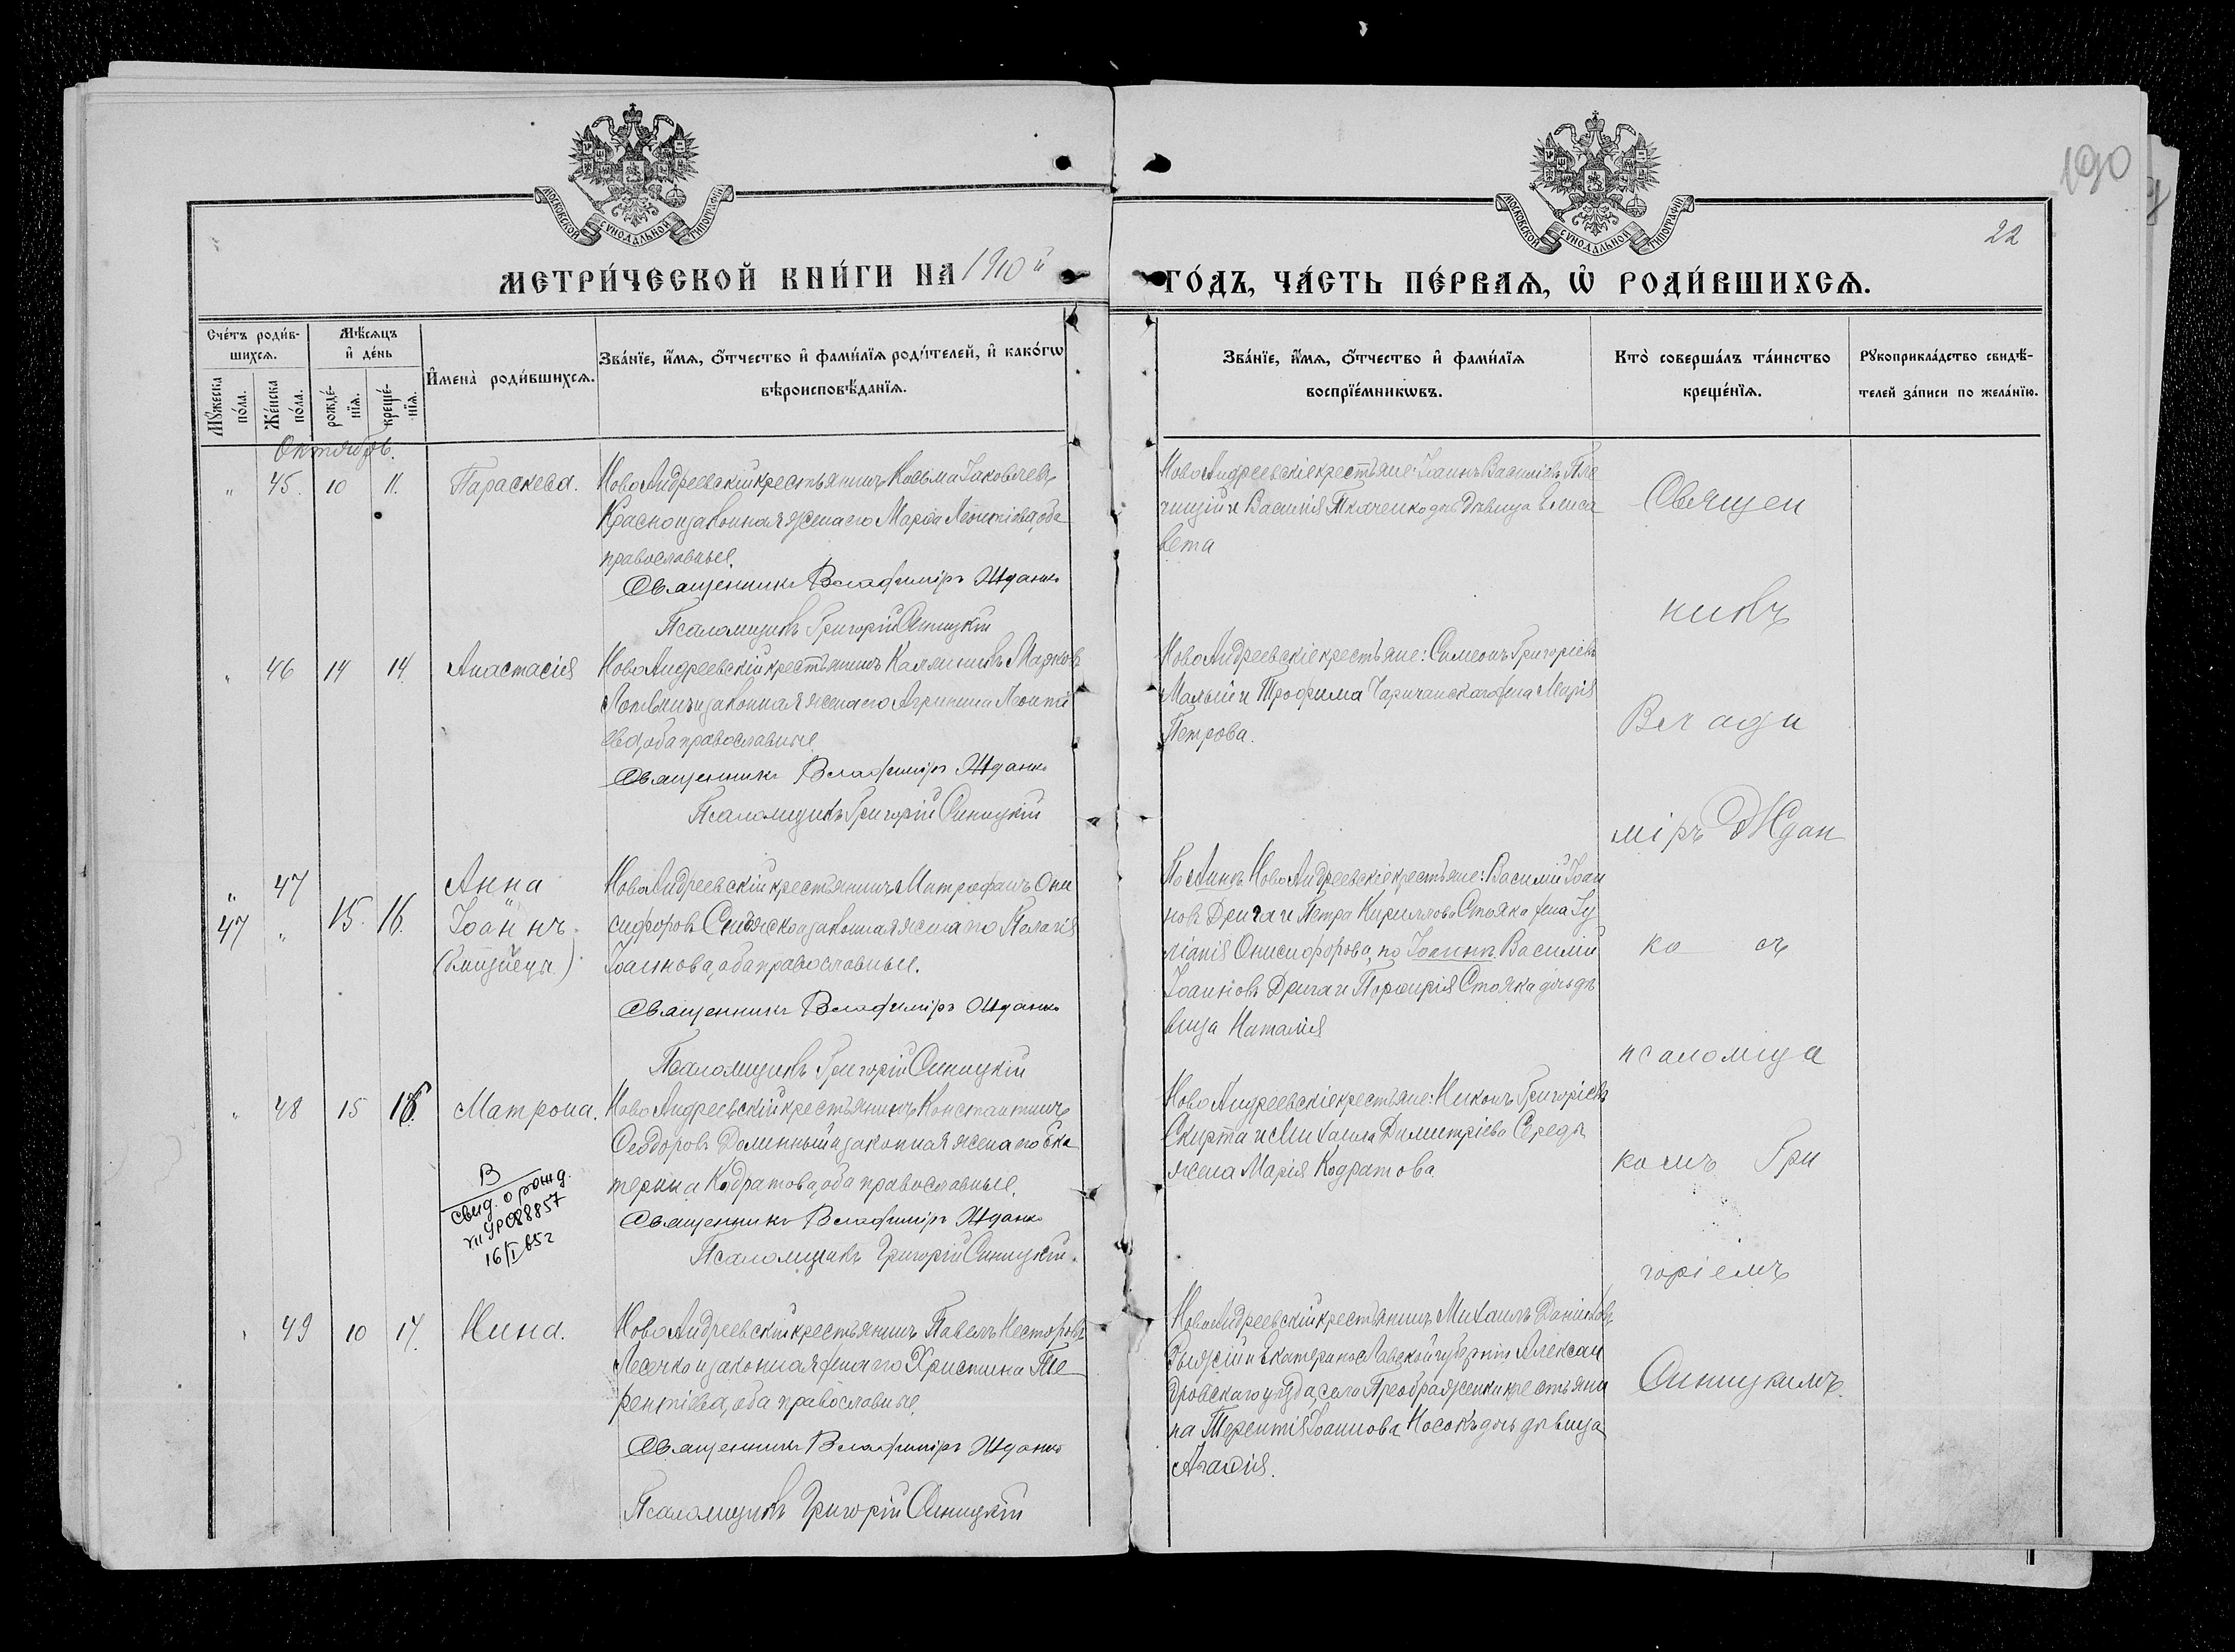 190
22
МОСКОВСКОЙ СѴНОДАЛЬНОЙ ТИПОГРАФІИ
МОСКОВСКОЙ СѴНОДАЛЬНОЙ ТИПОГРАФІИ
МЕТРИ́ЧЕСКОЙ КНИ́ГИ НА 1910 й
ГО́ДЪ, ЧА́СТЬ ПЕ́РВАѦ, Ѡ҆ РОДИ́ВШИХСѦ.
Сче́тъ роди́в-
шихсѧ.
Мꙋ́жеска по́ла.
Же́нска по́ла.
Мѣ́сѧцъ
и҆ де́нь
рожде́-нїѧ.
креще́-нїѧ.
И҆мена̀ роди́вшихсѧ.
Зва́нїе, и҆́мѧ, ѻ҆́тчество и҆ фами́лїѧ роди́телей, и҆ како́гѡ
вѣроисповѣ́данїѧ.
Зва́нїе, и҆́мѧ, ѻ҆́тчество и҆ фами́лїѧ
воспрїе́мникѡвъ.
Кто̀ соверша́лъ та́инство
креще́нїѧ.
Рꙋкоприкла́дство свидѣ́-
телей за́писи по жела́нїю.
Октябрь.
" 45. 10 11. Параскева.
НовоАндреевскій крестьянинъ Косьма Іаковлевъ
Красно и законная жена его Марѳа Леонтіева, оба
православные.
Священникъ Владиміръ Жданко
Псаломщикъ Григорій Синицкій
НовоАндреевскіе крестьяне: Іоаннъ Василіевъ
и Василія Ткаченко дочь дѣвица Елиса
вета
" 46 14 14. Анастасія
НовоАндреевскій крестьянинъ Каллиникъ
и законная жена его Агрипина Леонті
ева, оба православные
Священникъ Владиміръ Жданко
Псаломщикъ Григорій Синицкій
НовоАндреевскіе крестьяне: Симеонъ Григоріевъ
Малый и Трофима Чаричанскаго жена Марія
Петрова.
" 47 Анна
47 " 15. 16. Іоаннъ.
(близнецы)
НовоАндреевскій крестьянинъ Митрофанъ Они
сифоровъ и законная жена его Пелагія
Іоаннова, оба православные.
Священникъ Владиміръ Жданко
Псаломщикъ Григорій Синицкій
По Аннѣ НовоАндреевскіе крестьяне: Василій Іоан
новъ Дрига и Петра Кириллова Стояка жена Іу
ліанія Онисифорова, по Іоаннѣ Василій
Іоанновъ Дрига и Порфирія Стояка дочь дѣ
вица Наталія
" 48 15 16. Матрона.
В
свид. о рожд.
16/I 85г
НовоАндреевскій крестьянинъ Константинъ
Ѳеодоровъ Долинный и законная жена его Ека
терина Кодратова, оба православные.
Священникъ Владиміръ Жданко
Псаломщикъ Григорій Синицкій.
НовоАндреевскіе крестьяне: Никонъ Григоріевъ
Скирта и Михаила Димитріева Середы
жена Марія Кодратова
" 49 10 17. Нина.
НовоАндреевскій крестьянинъ Павелъ Несторовъ
Лесечко и законная жена его Христина Те
рентіева, оба православные.
Священникъ Владиміръ Жданко
Псаломщикъ Григорій Синицкій
НовоАндреевскій крестьянинъ Михаилъ Даніиловъ
и Екатеринославской губерніи Алексан
дровскаго уѣзда, села Преображенки крестьяни
на Терентія Іоаннова Носокъ дочь дѣвица
Агаѳія.
Священ
никъ
Влади
міръ Ждан
ко съ
псаломщи
комъ Гри
горіемъ
Синицкимъ.